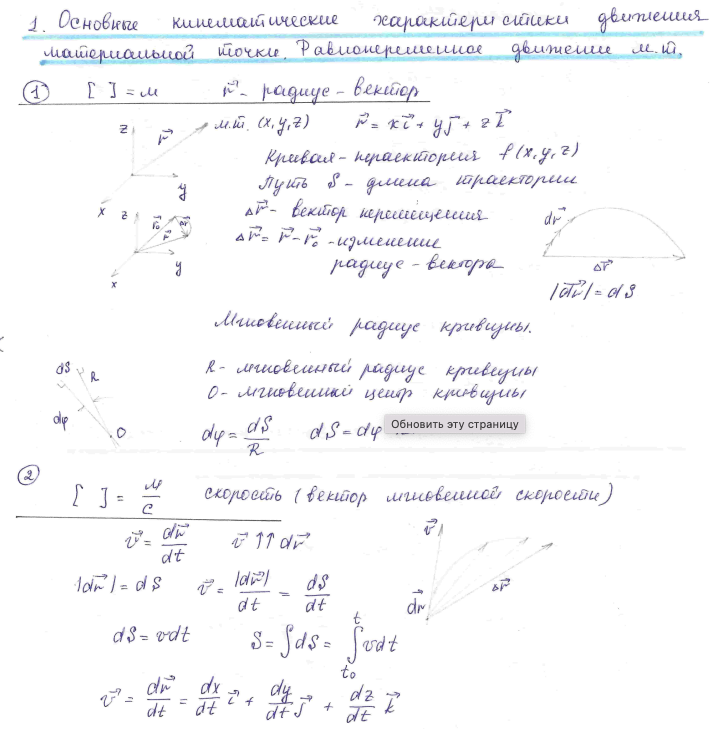 1. Основные кинематические характеристики движения
материальной точки. Равнопеременное движение м.т.
① [ ] = м r⃗ - радиус - вектор
z r⃗ м.т. (x, y, z) r⃗ = xi⃗ + yj⃗ + zk⃗
y
x
Кривая - траектория f(x, y, z)
Путь S - длина траектории
z r⃗₀ Δr⃗ r⃗ y x
Δr⃗ - вектор перемещения
Δr⃗ = r⃗ - r⃗₀ - изменение
радиус - вектора
dr⃗
Δr⃗
|dr⃗| = dS
Мгновенный радиус кривизны.
dS R dφ O
R - мгновенный радиус кривизны
O - мгновенный центр кривизны
dφ = dS/R dS = dφ
Обновить эту страницу
② [ ] = м/с скорость (вектор мгновенной скорости)
v⃗ = dr⃗/dt v⃗ ↑↑ dr⃗
v⃗ dr⃗ Δr⃗
|dr⃗| = dS v⃗ = |dr⃗|/dt = dS/dt
dS = vdt S = ∫dS = ∫ₜ₀ᵗ vdt
v⃗ = dr⃗/dt = dx/dt i⃗ + dy/dt j⃗ + dz/dt k⃗